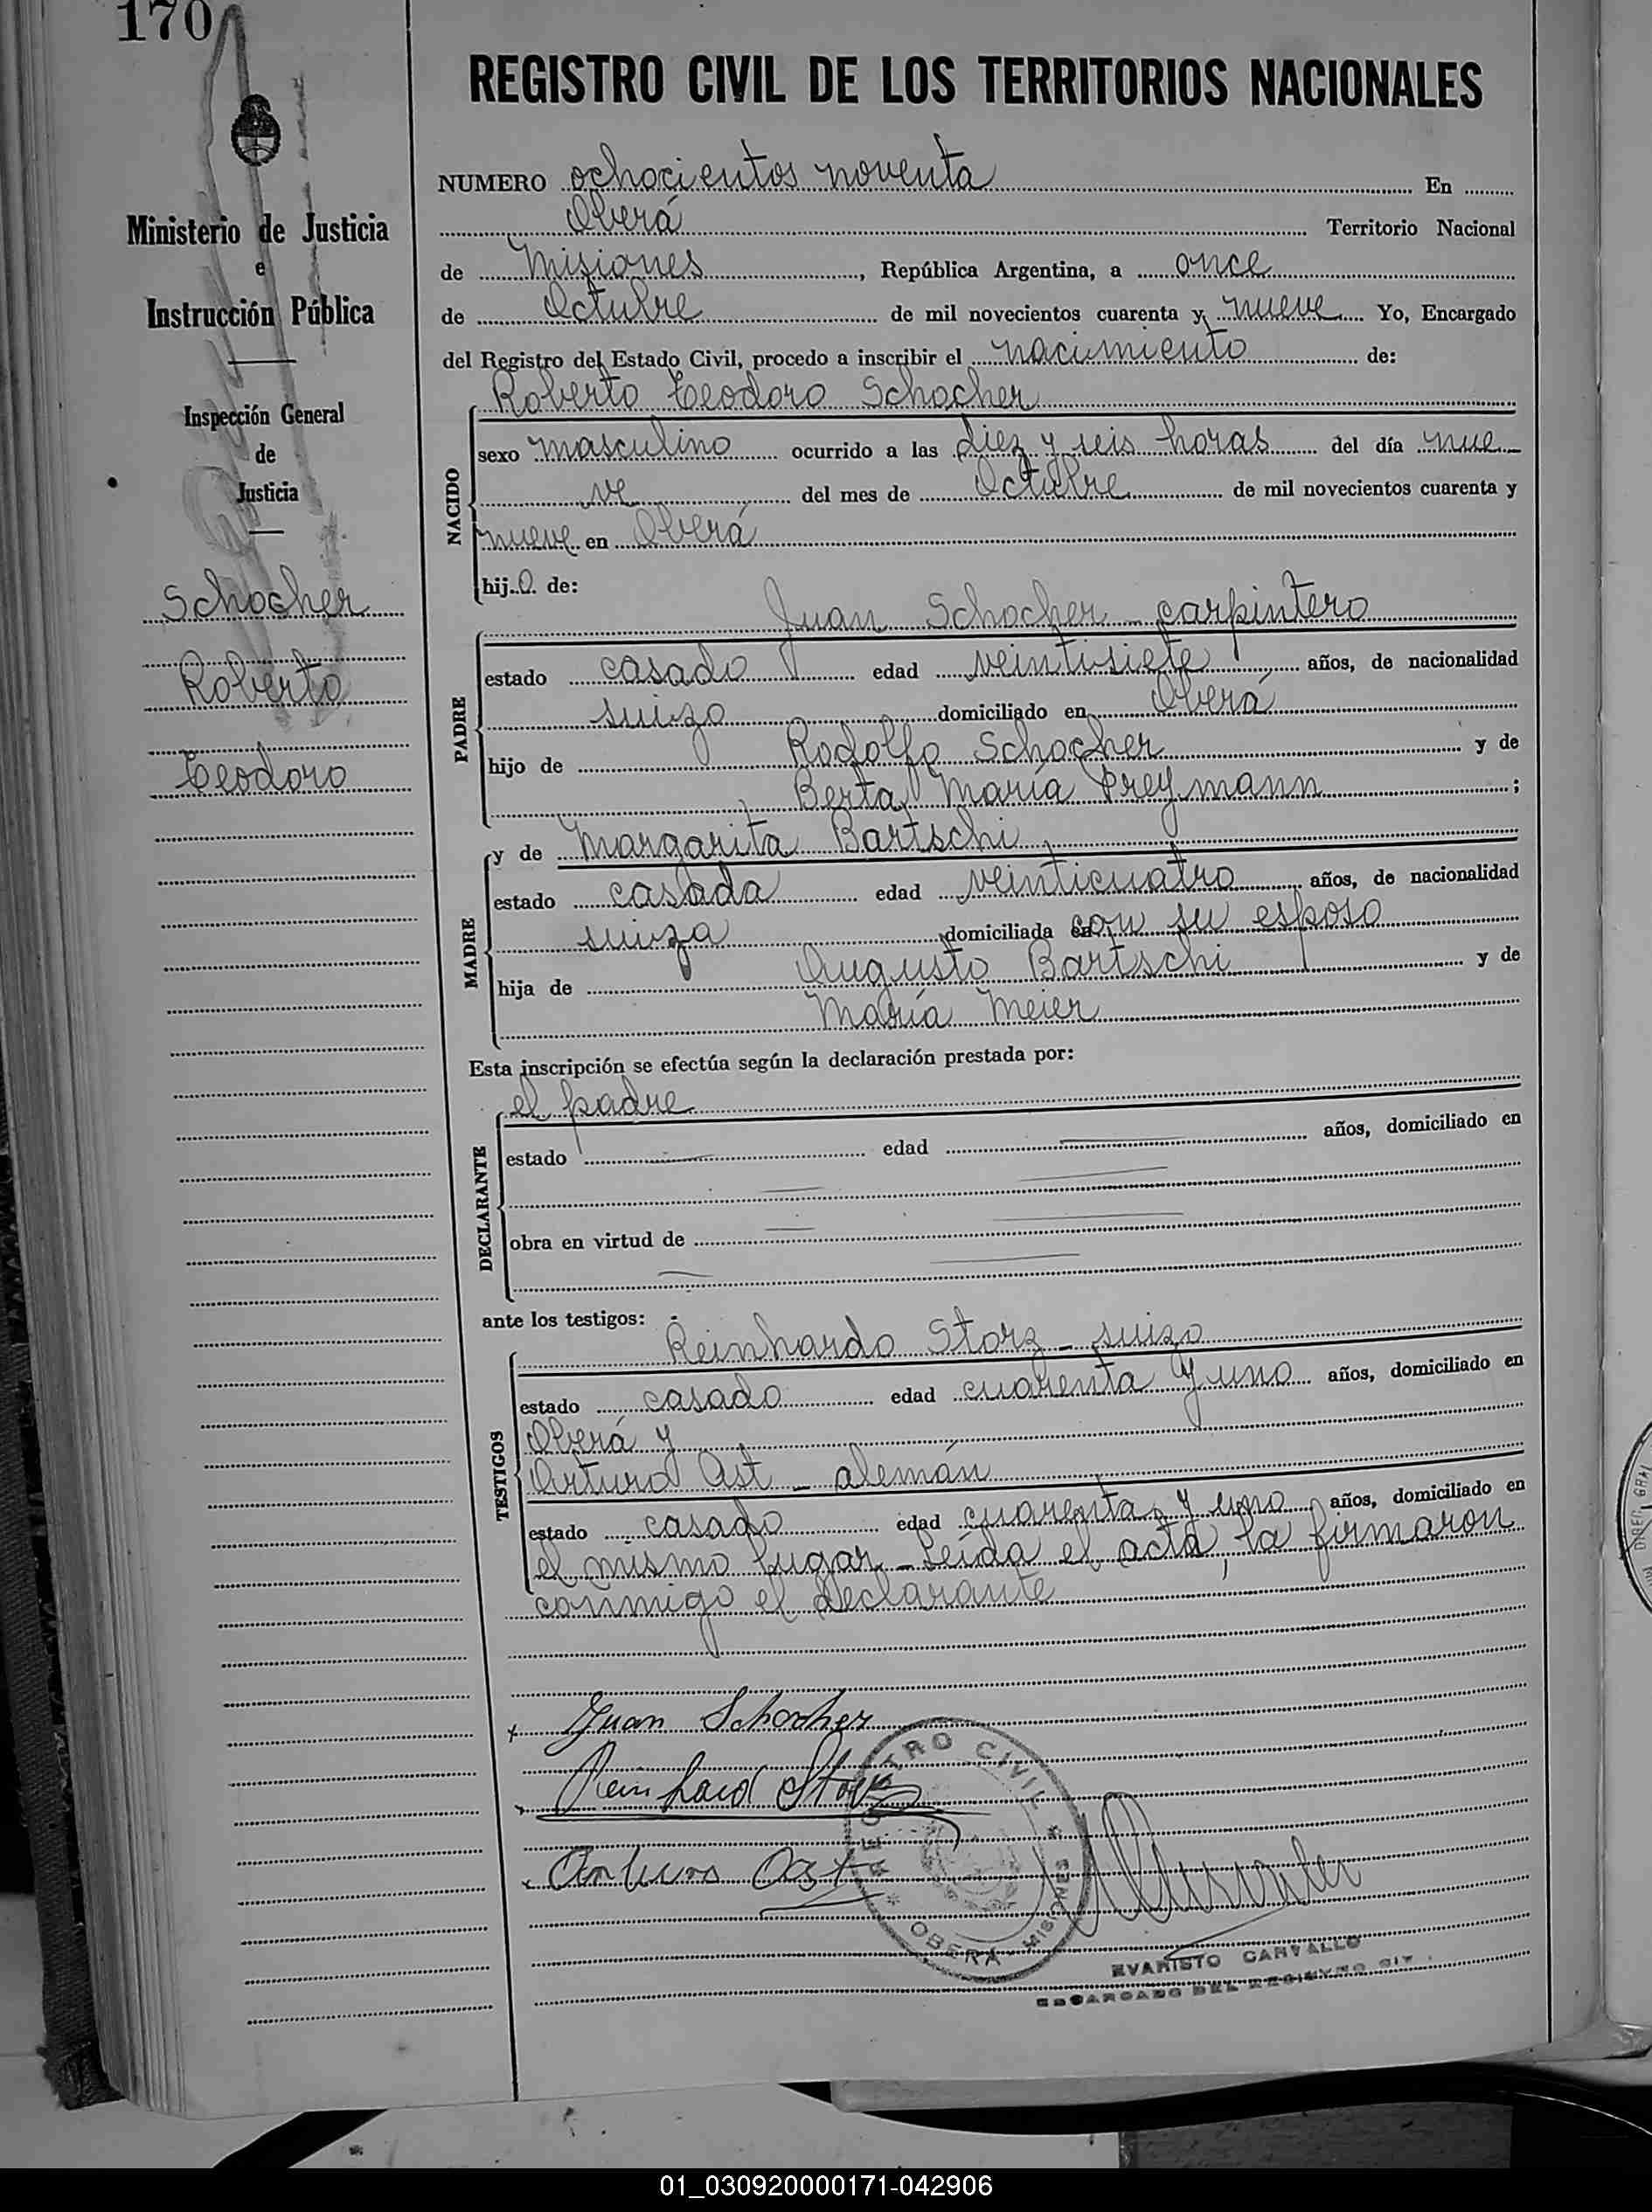 170
Ministerio de Justicia
e
Instrucción Pública
Inspección General
de
Justicia
Schocher
Roberto
Teodoro
REGISTRO CIVIL DE LOS TERRITORIOS NACIONALES
NUMERO ochocientos noventa En
Oberá Territorio Nacional
de Misiones, República Argentina, a once
de Octubre de mil novecientos cuarenta y nueve Yo, Encargado
del Registro del Estado Civil, procedo a inscribir el nacimiento de:
Roberto Teodoro Schocher
NACIDO
sexo masculino ocurrido a las diez y seis horas del día nue
ve del mes de Octubre de mil novecientos cuarenta y
nueve en Oberá
hijo de:
Juan Schocher - carpintero
PADRE
estado casado edad veintisiete años, de nacionalidad
suizo domiciliado en Oberá
hijo de Rodolfo Schocher y de
Berta María Preymann ;
MADRE
y de Margarita Bartschi
estado casada edad veinticuatro años, de nacionalidad
suiza domiciliada con su esposo
hija de Augusto Bartschi y de
María Meier
Esta inscripción se efectúa según la declaración prestada por:
el padre
DECLARANTE
estado edad años, domiciliado en
obra en virtud de
ante los testigos:
Reinhardo Storz - suizo
TESTIGOS
estado casado edad cuarenta y uno años, domiciliado en
Oberá y
Arturo Ast - alemán
estado casado edad cuarenta y uno años, domiciliado en
el mismo lugar - Leída el acta, la firmaron
conmigo el declarante
Juan Schocher
Reinhard Storz
Arturo Ast
REGISTRO CIVIL
* OBERA - MISIONES *
EVARISTO CARVALLO
ENCARGADO DEL REGISTRO CIV.
01_030920000171-042906